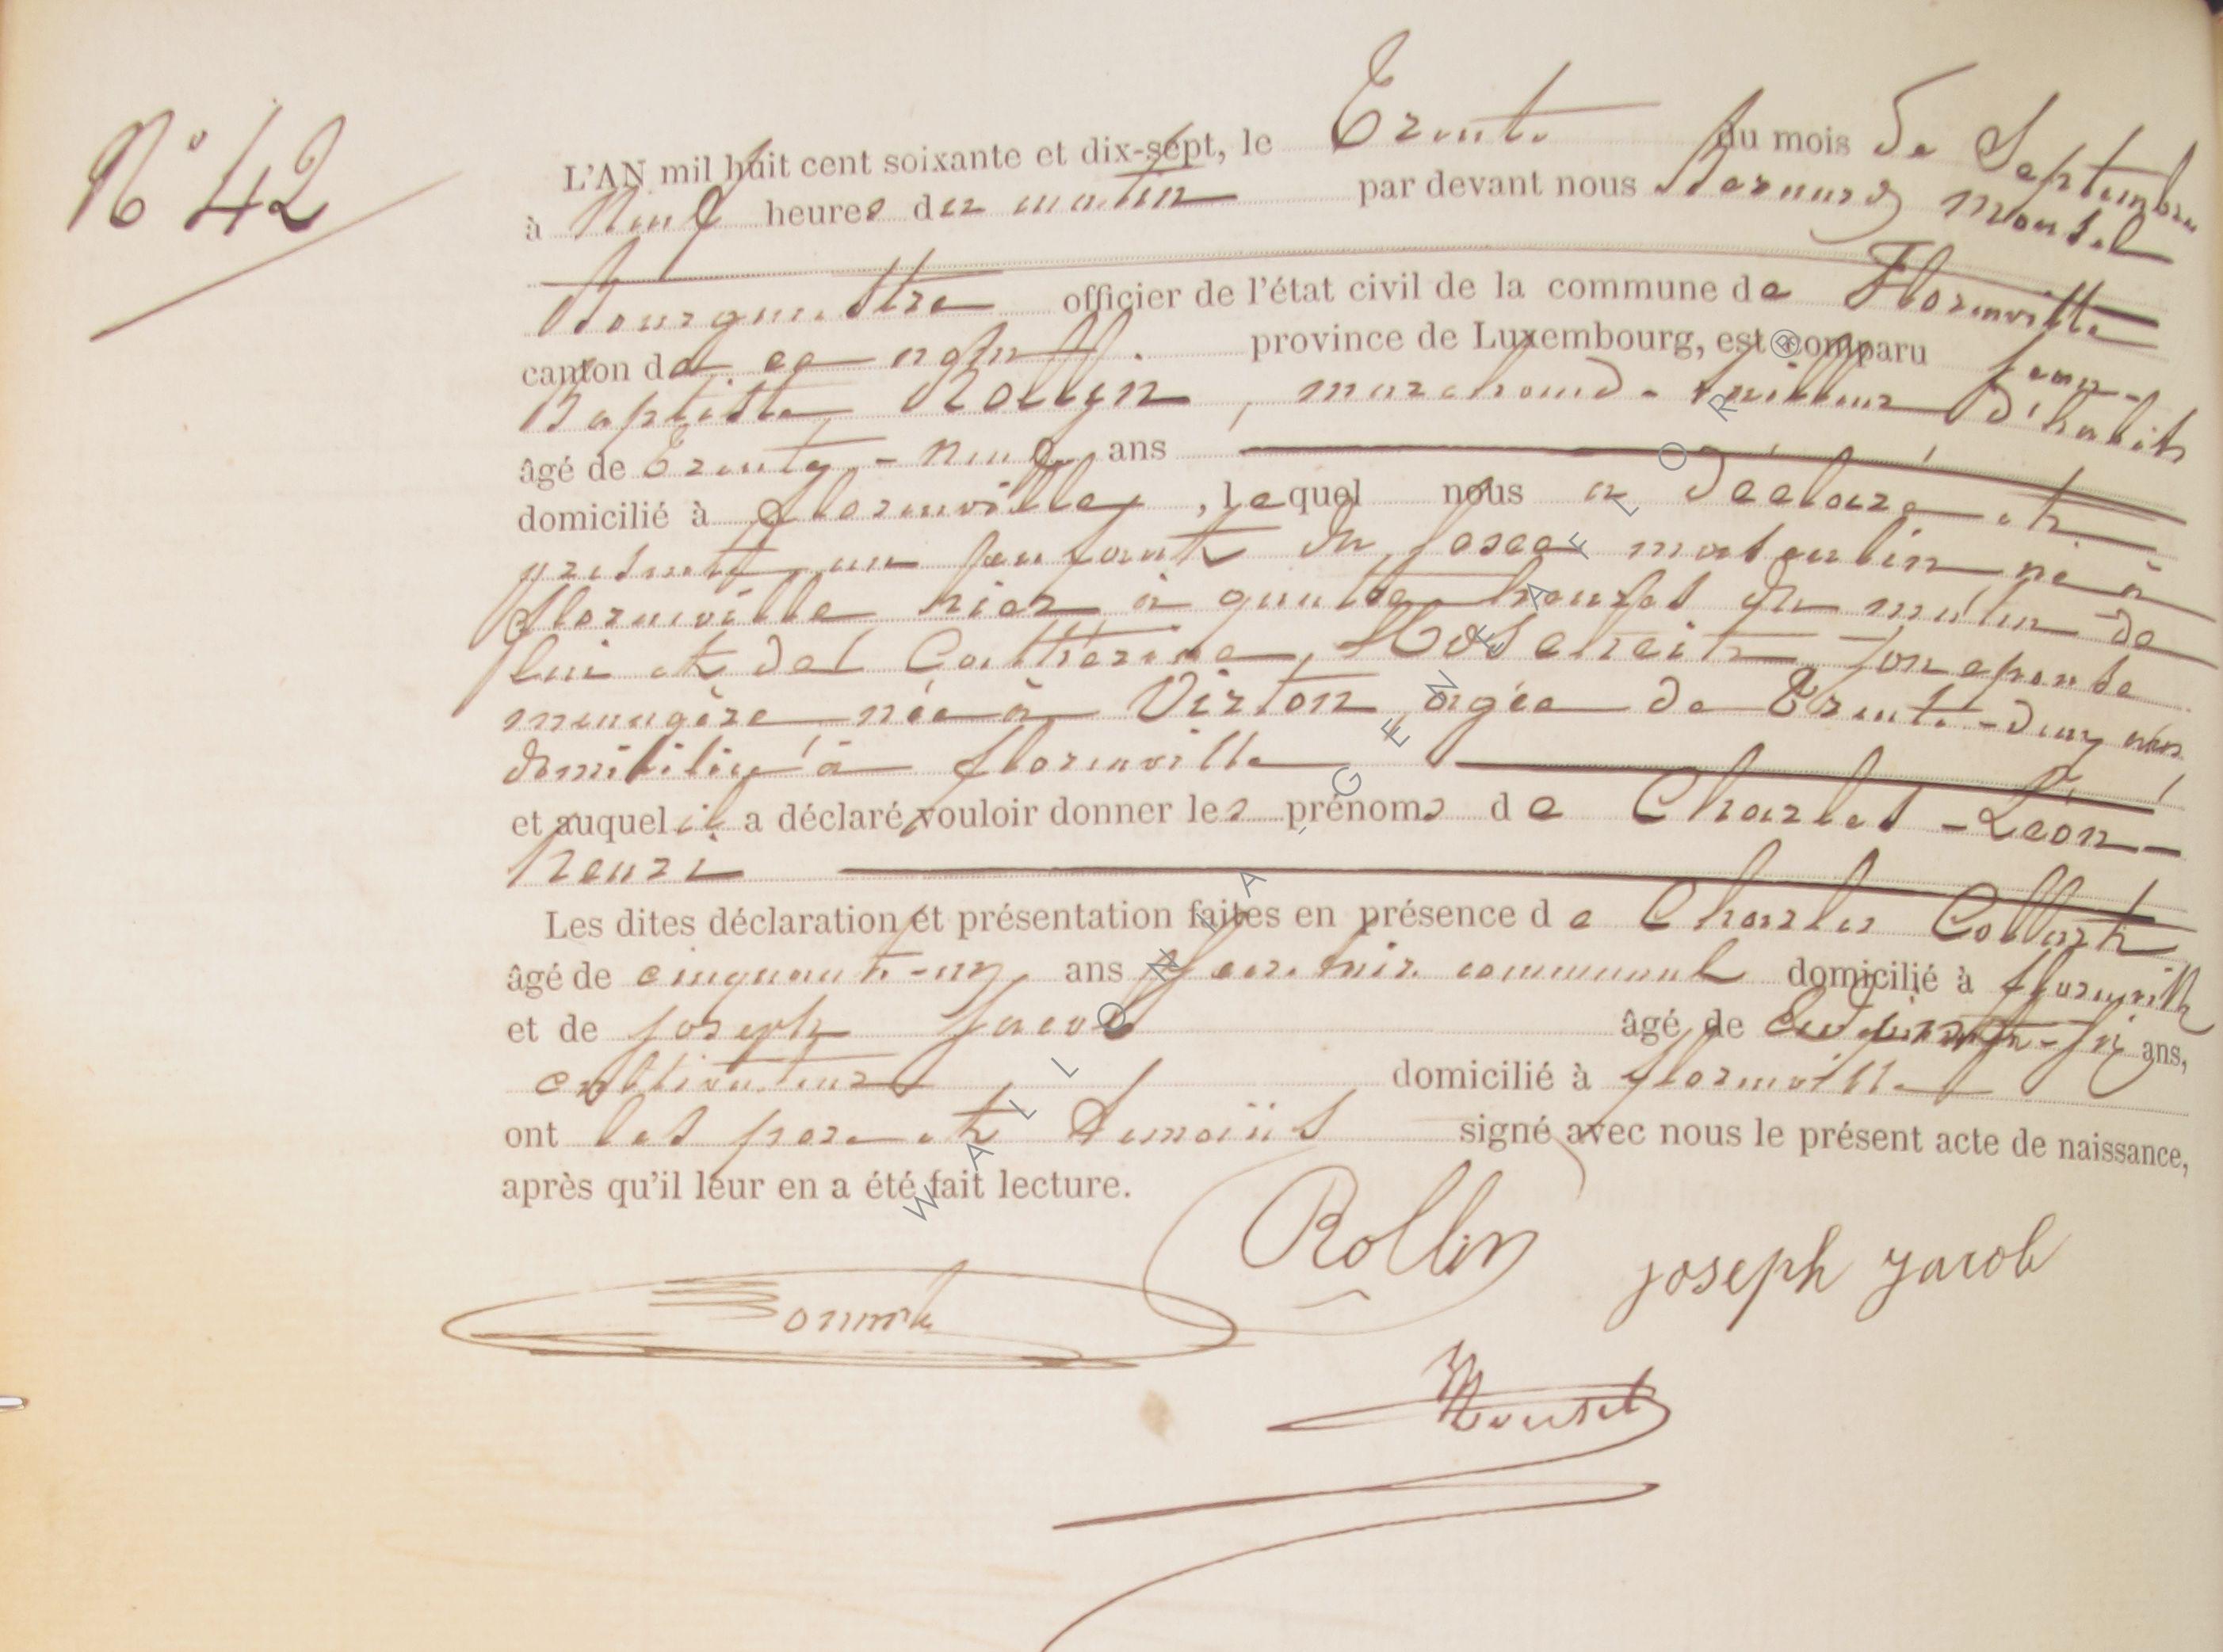 N° 42
L'AN mil huit cent soixante et dix-sept, le Trente du mois de Septembre
à Neuf heures du matin par devant nous Bernard Mousel
Bourgmestre officier de l'état civil de la commune de Florenville
canton de province de Luxembourg, est comparu Jean-
Baptiste Rollin, marchand-tailleur d'habits
âgé de Trente-neuf ans
domicilié à Florenville, lequel nous a déclaré et
présenté un enfant du sexe masculin né à
Florenville hier à quatre heures du matin de
lui et de Catherine son épouse
menagère née à Virton âgée de Trente-deux ans
domiciliée à florenville
et auquel il a déclaré vouloir donner les prénoms de Charles-Léon-
henri
Les dites déclaration et présentation faites en présence de Charles Collart
âgé de cinquante-un ans communal domicilié à florenville
et de Joseph Jacob âgé de ans,
cultivateur domicilié à florenville
ont les père et témoins signé avec nous le présent acte de naissance,
après qu'il leur en a été fait lecture.
Rollin joseph jacob
Mousel
WALLONIA - GENEAFLOR ®